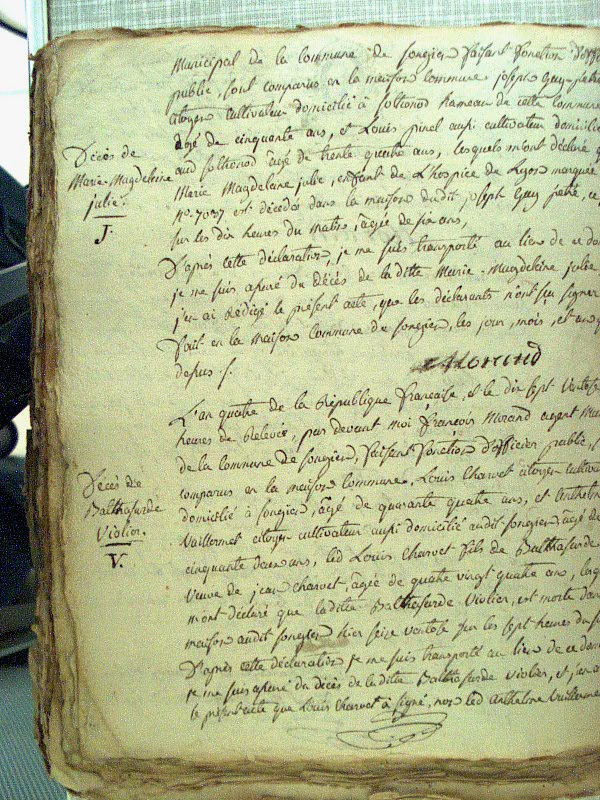 Municipal de la Commune de Songieu faisant fonction d'offi
public, sont comparus en la maison commune joseph Guy-patré
citoyen cultivateur domicilié à Sothonod hameau de cette commune
âgé de cinquante ans, et Louis pinel aussi cultivateur domicilié
aud Sothonod âgé de trente quatre ans, lesquels m'ont déclaré q
Décès de
Marie Magdeleine
julie.
J.
Marie Magdeleine julie, enfant de L'hospice de Lyon marquée
N.º 7037 est décédée dans la maison dudit joseph Guy patré, ce
sur les dix heures du matin, âgée de six ans,
D'après cette déclaration, je me suis transporté au lieu de ce do
je me suis assuré du Décès de la ditte Marie-Magdeleine julie
j'en ai rédigé le présent acte, que les déclarants n'ont seu signer
Fait en la Maison Commune de Songieu, les jour, mois, et an q
depus /.
Morand
L'an quatre de la République française, et le dix sept Ventose
heures de relevée, par devant moi françois Morand agent Mun
de la commune de Songieu, faisant fonction d'officier public,
comparus en la maison commune, Louis Charvet citoyen cultivat
domicilié à Songieu, âgé de quarante quatre ans, et Anthelme
Décès de
Balthasarde
Violier.
V.
Vuillermet citoyen cultivateur aussi domicilié audit Songieu âgé de
cinquante deux ans, led Louis Charvet fils de Balthasarde
Veuve de jean Charvet, âgée de quatre vingt quatre ans, lesq
m'ont déclaré que ladite Balthasarde Violier, est morte dans
maison audit Songieu hier seize ventose sur les sept heures du s
D'après cette déclaration je me suis transporté au lieu de ce dom
je me suis assuré du décès de la ditte Balthasarde Violier, et j'en ai
le présent acte que Louis Charvet à signé, non led Anthelme Vuillerme